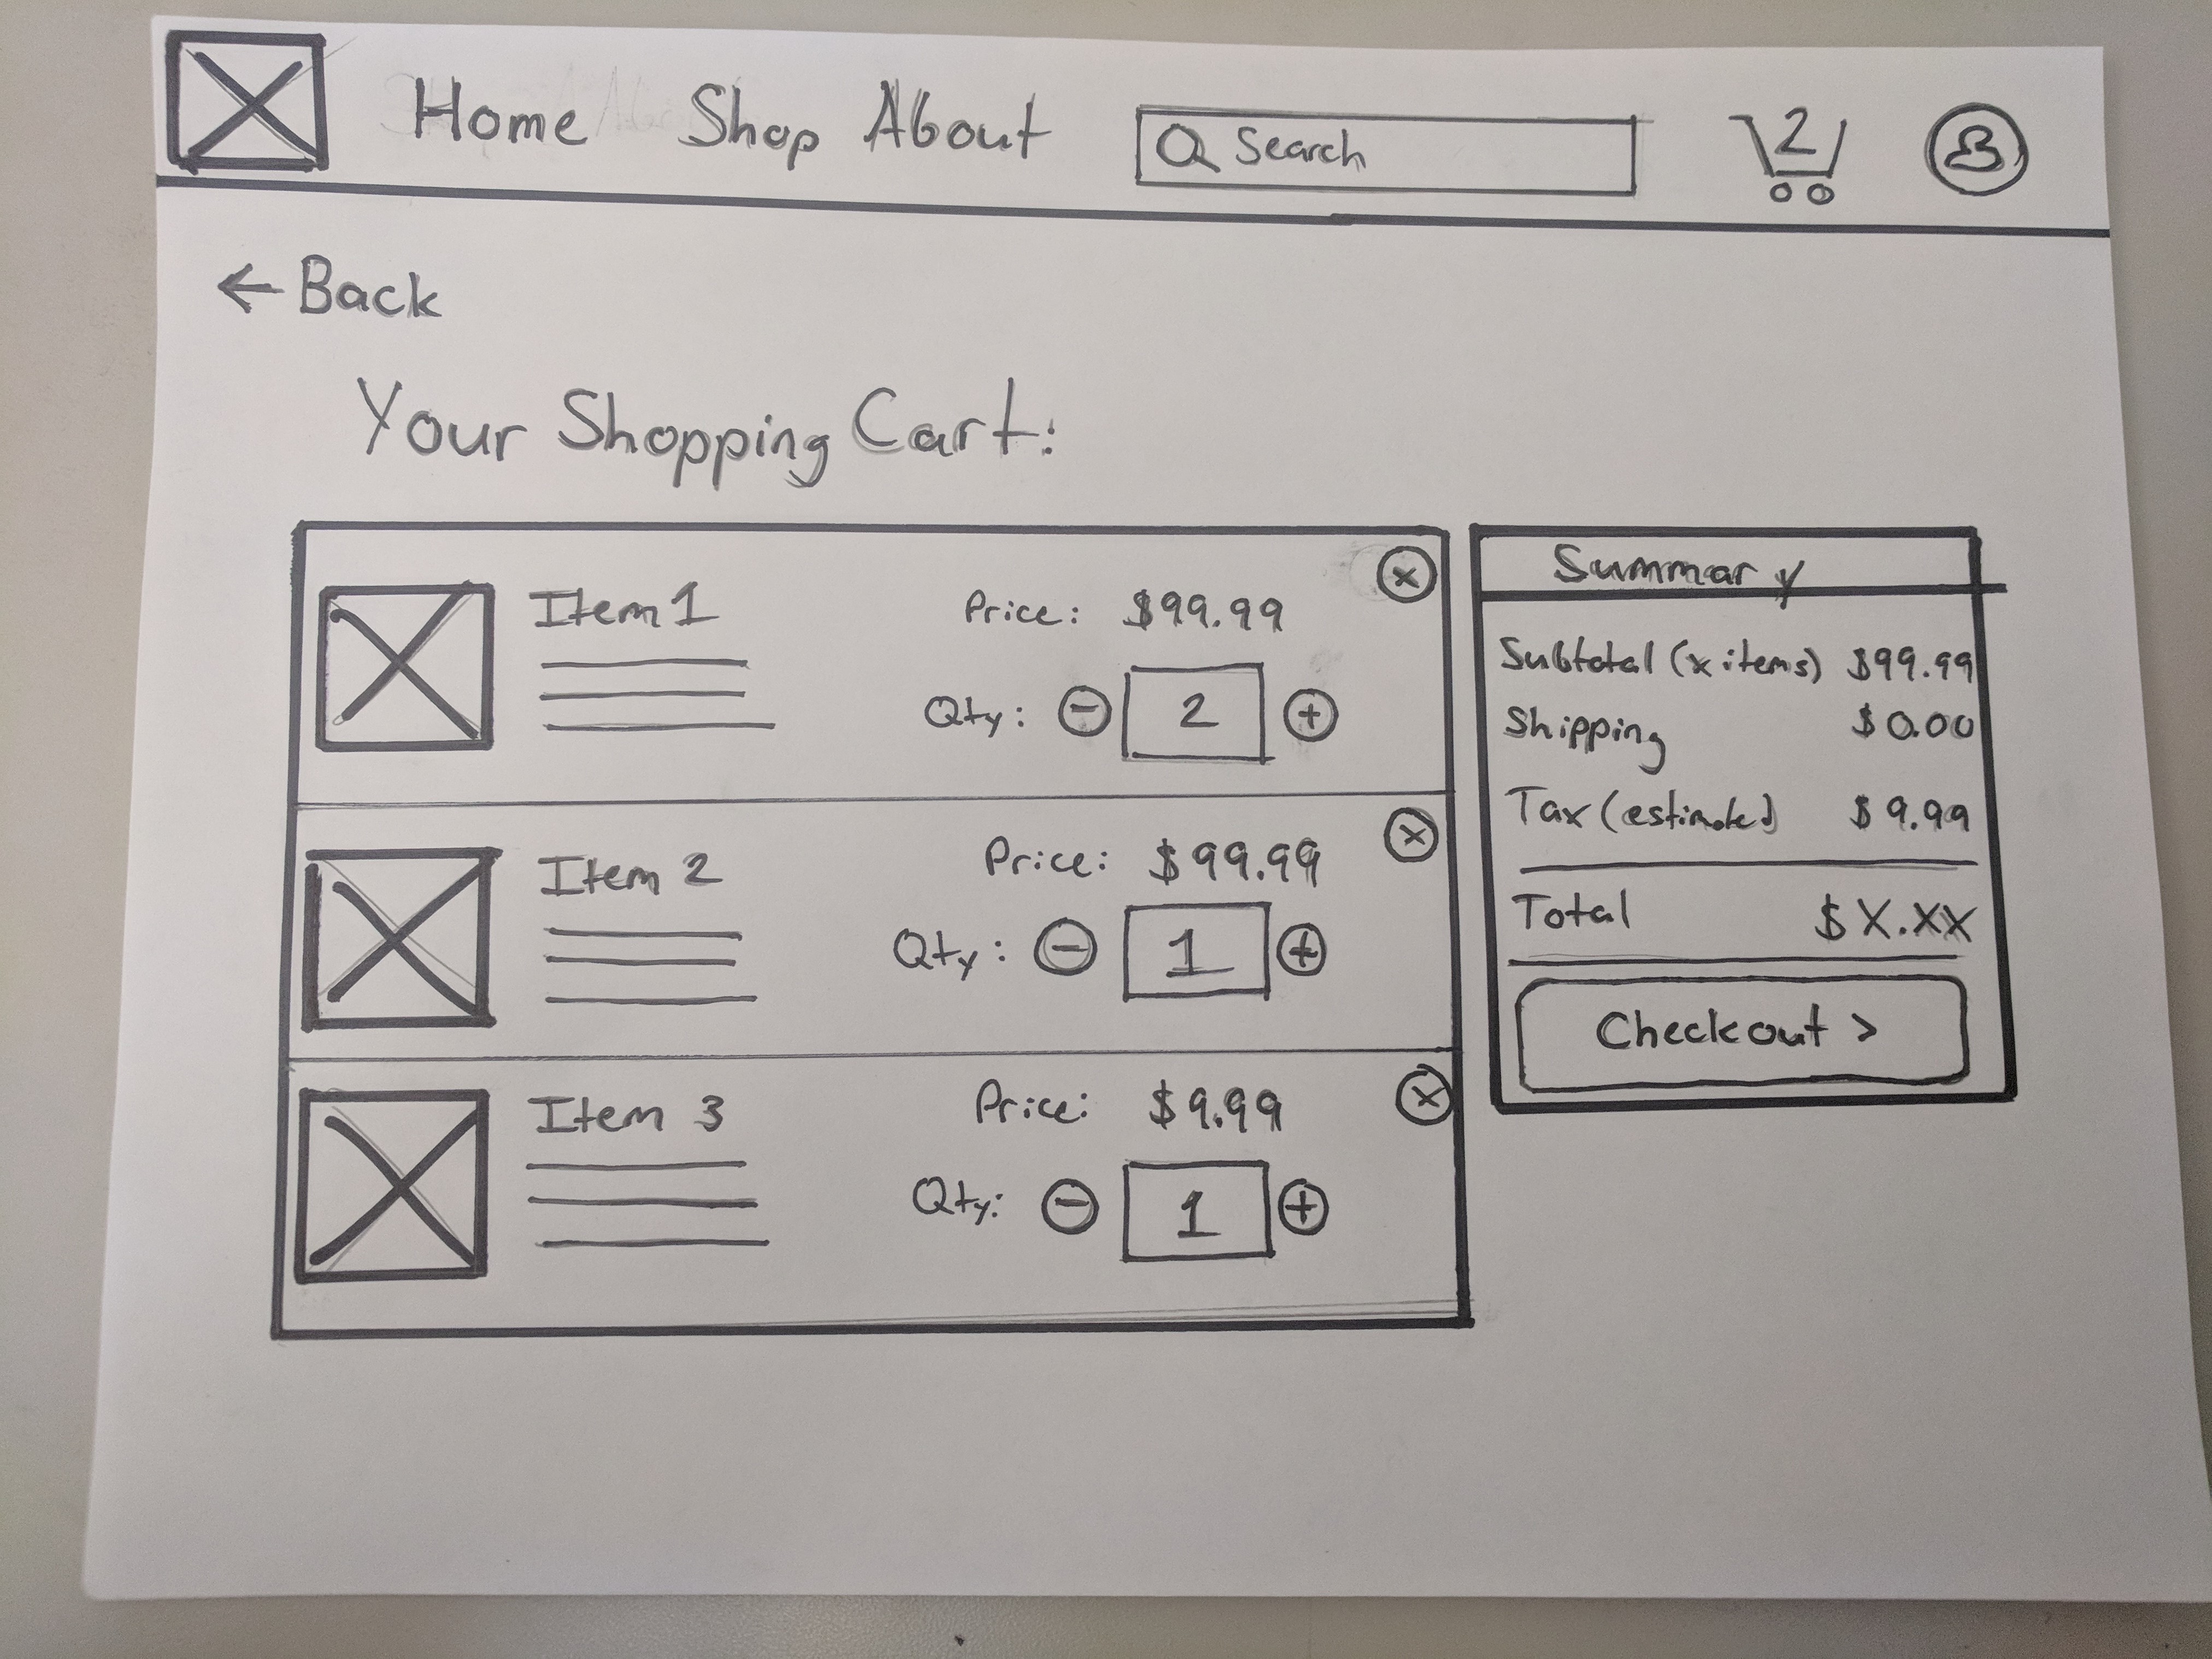 Home Shop About Search 2
← Back
Your Shopping Cart:
Item 1 Price: $99.99 x
Qty: - 2 +
Item 2 Price: $99.99 x
Qty: - 1 +
Item 3 Price: $9.99 x
Qty: - 1 +
Summary
Subtotal (x items) $99.99
Shipping $0.00
Tax (estimated) $9.99
Total $X.XX
Checkout >